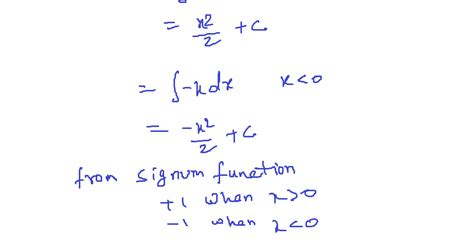 = x²/2 + C
= ∫-x dx x<0
= -x²/2 + C
from signum function
+1 when x>0
-1 when x<0